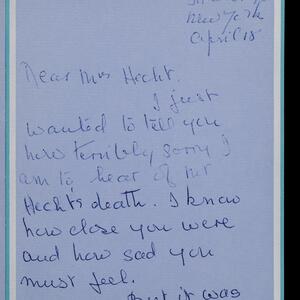 New York
April 18
Dear Mrs Hecht.
I just
wanted to tell you
how terribly sorry I
am to hear of mr
Hecht's death. I know
how close you were
and how sad you
must feel.
But it was